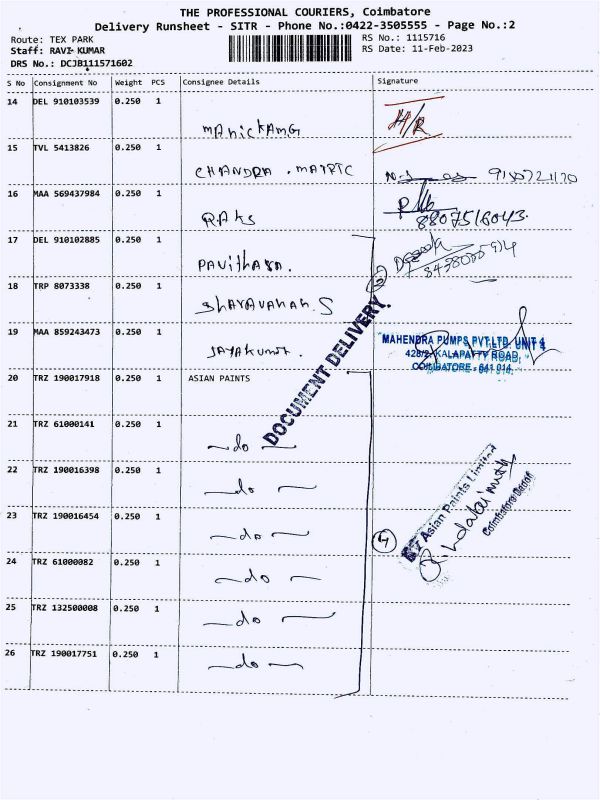 THE PROFESSIONAL COURIERS, Coimbatore
Delivery Runsheet - SITR - Phone No.:0422-3505555 - Page No.:2
Route: TEX PARK
RS No.: 1115716
Staff: RAVI KUMAR
RS Date: 11-Feb-2023
DRS No.: DCJB111571602
S No Consignment No Weight PCS Consignee Details Signature
14 DEL 910103539 0.250 1
H/R
MAnickAMG
15 TVL 5413826 0.250 1
CHANDRA . MATRIC
16 MAA 569437984 0.250 1
RAKS
8807516043
17 DEL 910102885 0.250 1
PAVithRA.
18 TRP 8073338 0.250 1
SHARAVANAN. S
19 MAA 859243473 0.250 1
JAYAKUMAR.
DOCUMENT DELIVERY
MAHENDRA PUMPS PVT.LTD. UNIT 4
428/2, KALAPATTY ROAD,
COIMBATORE - 641 014.
20 TRZ 190017918 0.250 1 ASIAN PAINTS
21 TRZ 61000141 0.250 1
—do—
22 TRZ 190016398 0.250 1
—do—
Asian Paints Limited
Coimbatore Depot
23 TRZ 190016454 0.250 1
—do—
24 TRZ 61000082 0.250 1
—do—
25 TRZ 132500008 0.250 1
—do—
26 TRZ 190017751 0.250 1
—do—